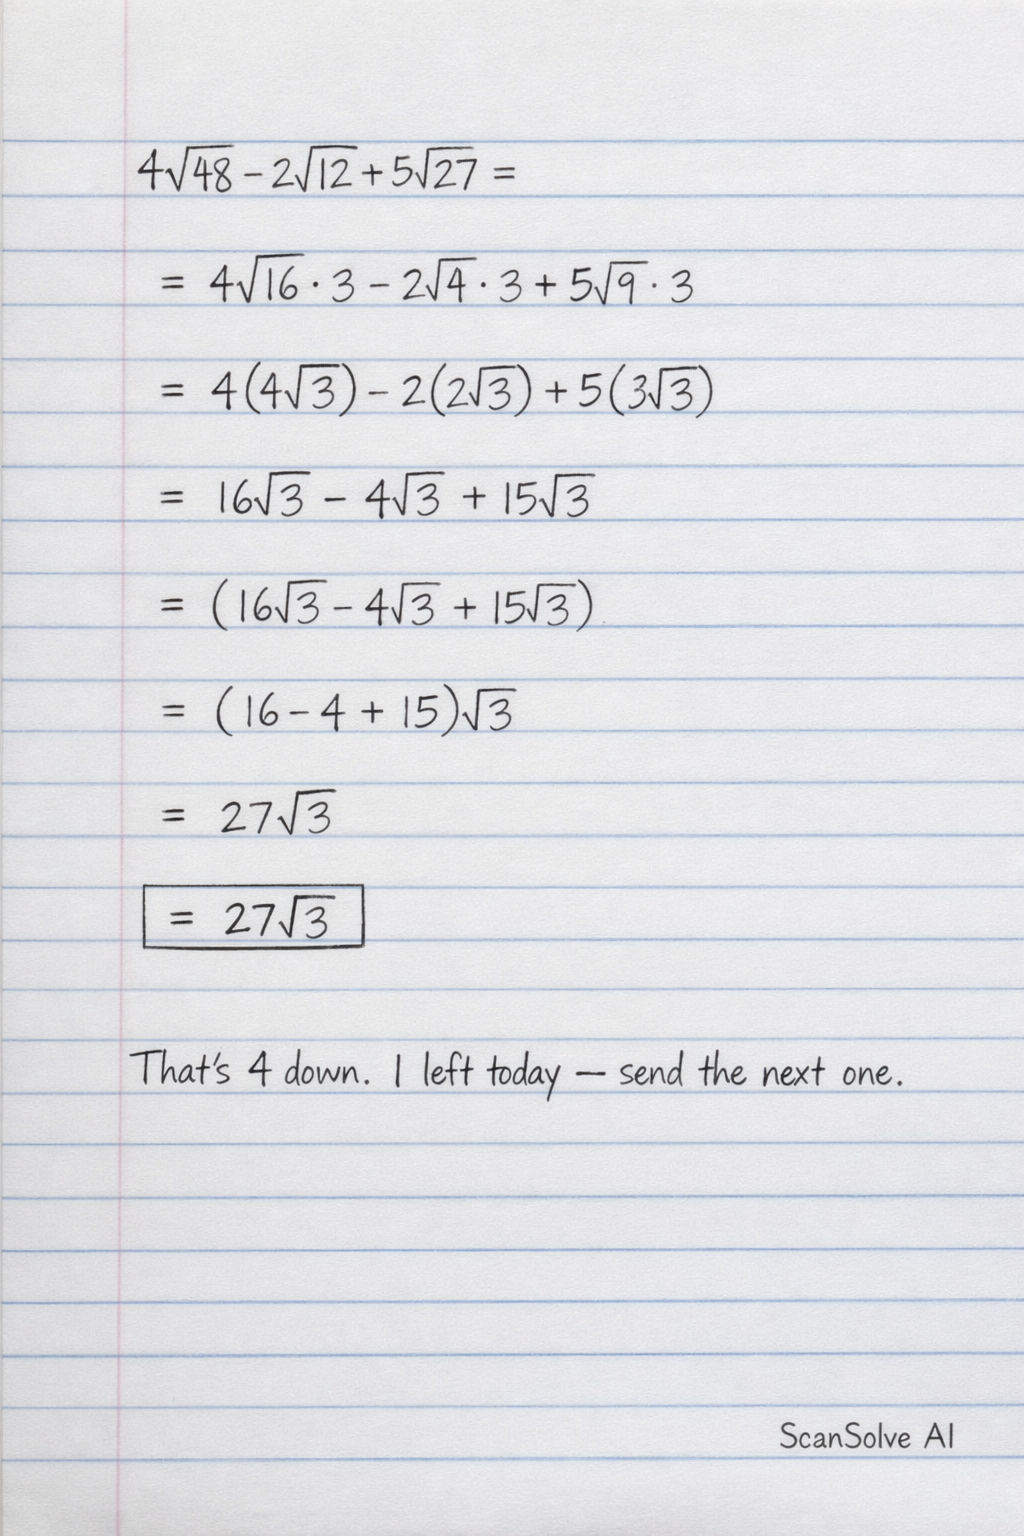 4√48 - 2√12 + 5√27 =
= 4√16 · 3 - 2√4 · 3 + 5√9 · 3
= 4(4√3) - 2(2√3) + 5(3√3)
= 16√3 - 4√3 + 15√3
= (16√3 - 4√3 + 15√3)
= (16 - 4 + 15)√3
= 27√3
= 27√3
That's 4 down. 1 left today — send the next one.
ScanSolve AI